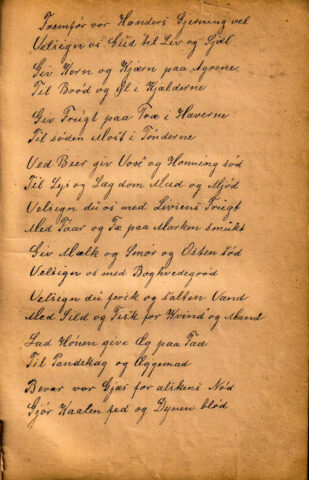 Fremfør vor Hænders Gjerning vel
Velsign os Gud til Liv og Sjæl
Giv Korn og Kjærn paa Agrene
Til Brød og Øl i Kjælderne
Giv Frugt paa Træ i Haverne
Til søden Most i Tønderne
Ved Bier giv Vox og Honning sød
Til Lys og Lægdom Mad og Mjød
Velsign du os med Livsens Frugt
Med Faar og Fæ paa Marken smukt
Giv Mælk og Smør og Osten sød
Velsign os med Boghvedegrød
Velsign du fersk og salten Vand
Med Sild og Fisk for Kvind og Mand
Lad Hønen give Æg paa Fad
Til Pandekag og Æggemad
Bevar vor Gjæs for alskens Nød
Gjør Kaalen fed og Dynen blød